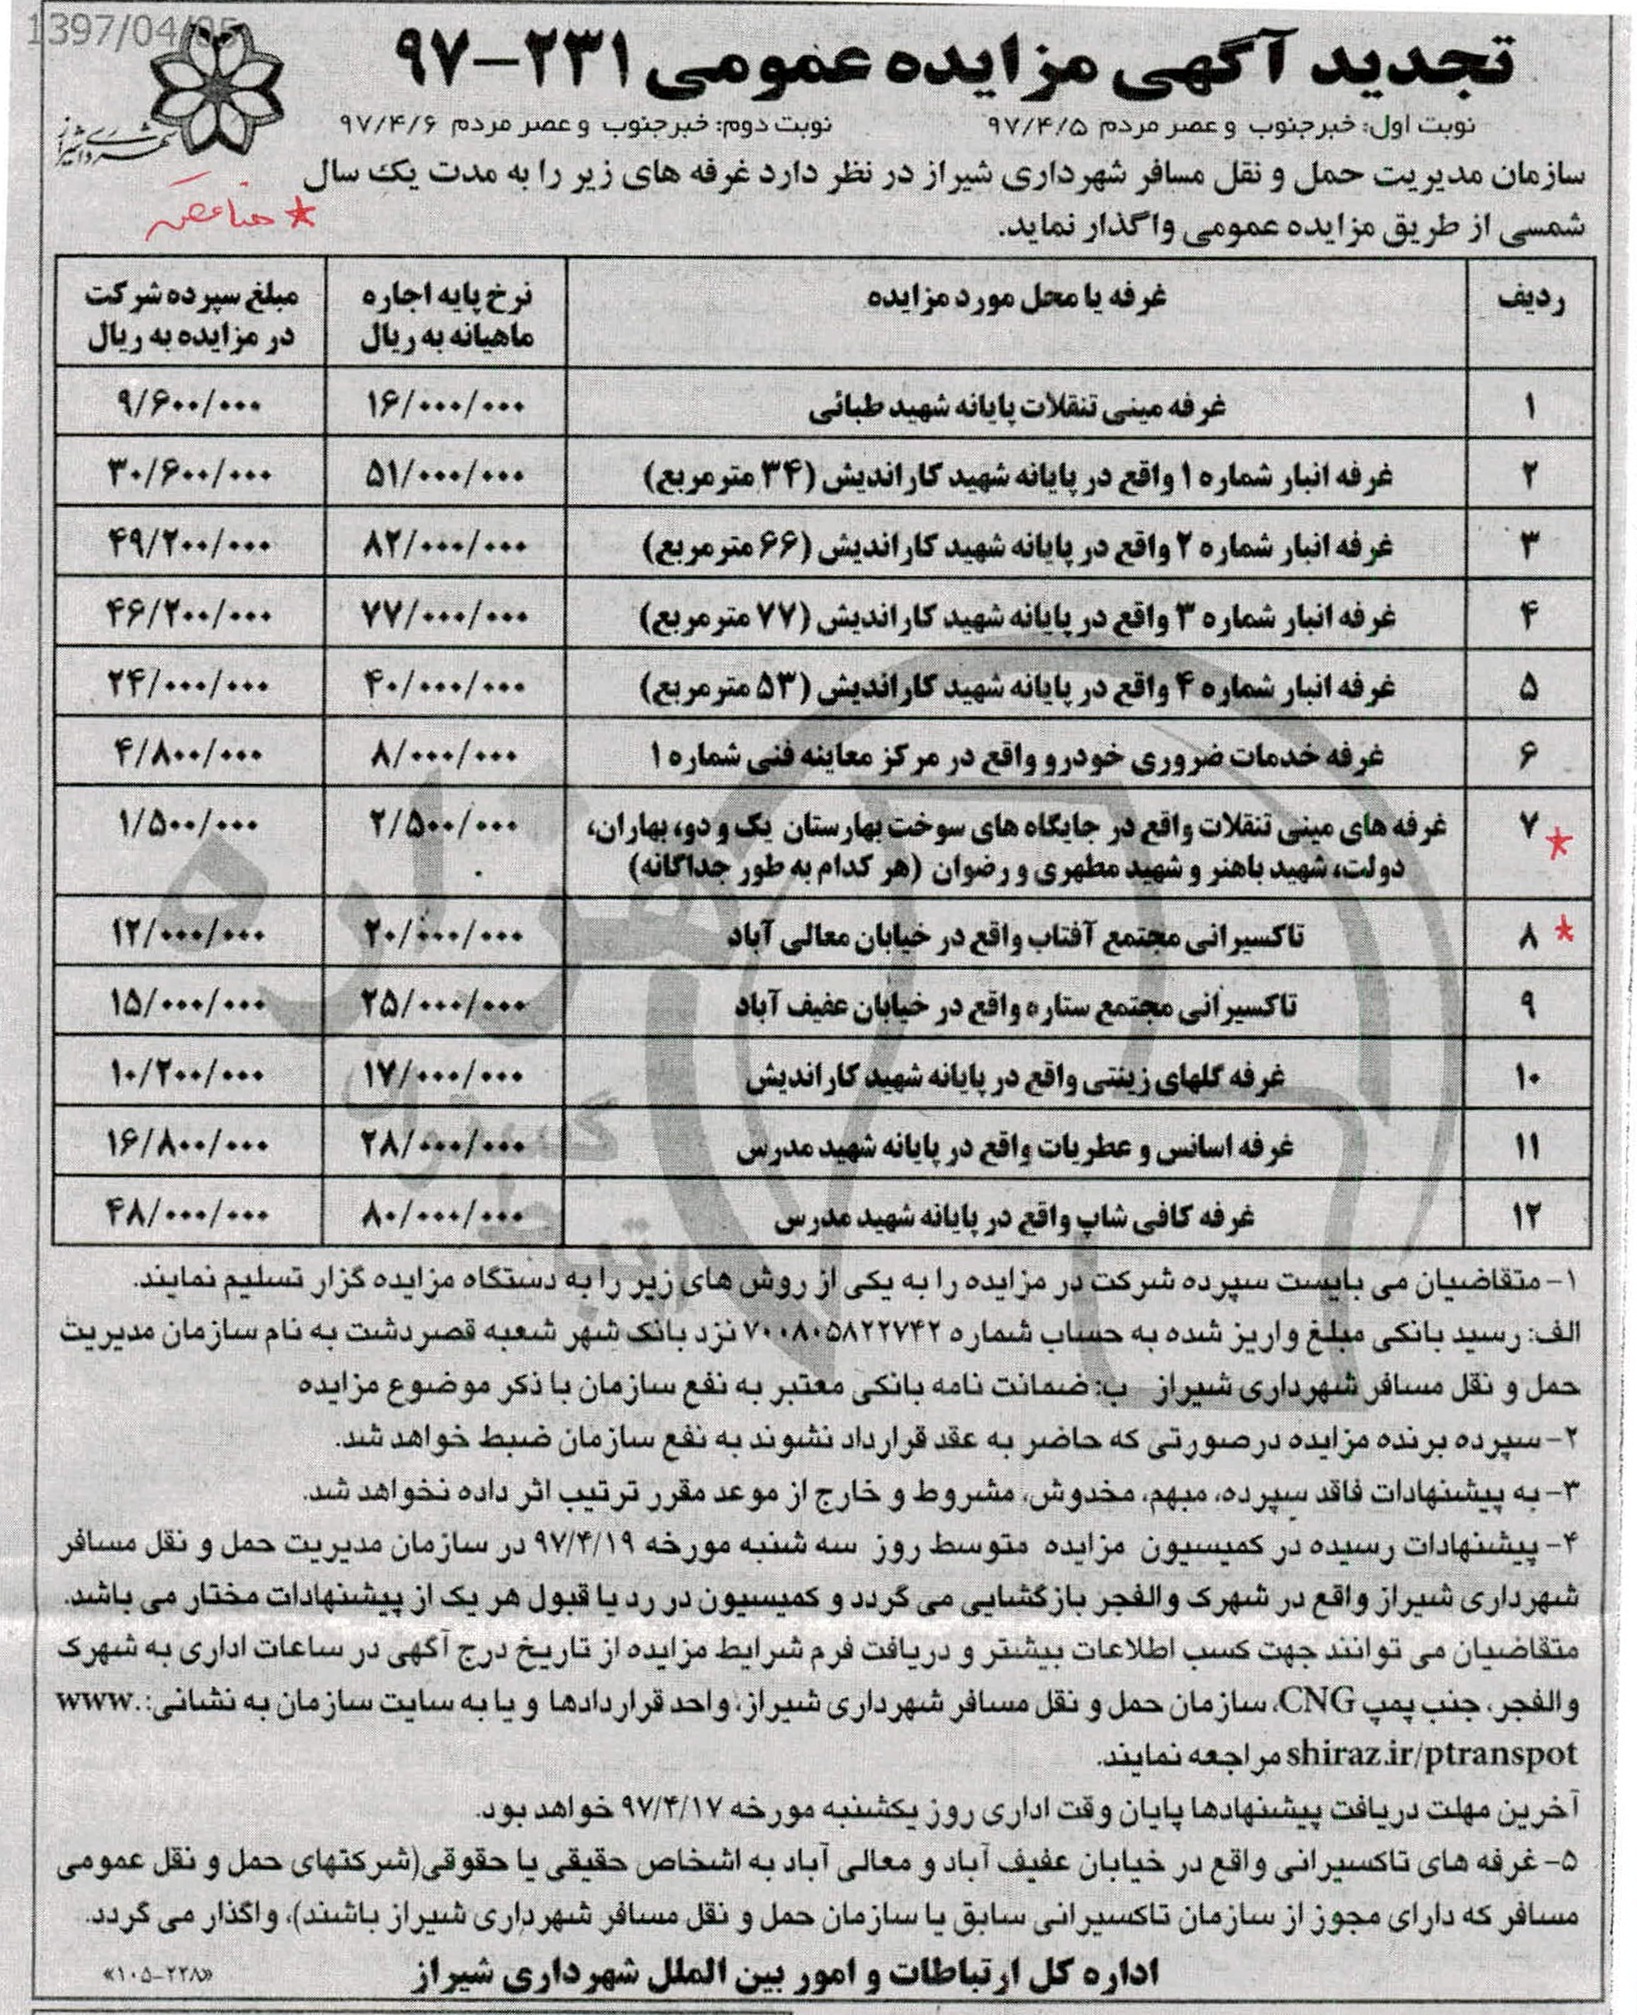 1397/04/05
تجدید آگهی مزایده عمومی ۲۳۱-۹۷
نوبت اول: خبرجنوب و عصر مردم ۹۷/۴/۵ نوبت دوم: خبرجنوب و عصر مردم ۹۷/۴/۶
شهرداری شیراز
سازمان مدیریت حمل و نقل مسافر شهرداری شیراز در نظر دارد غرفه های زیر را به مدت یک سال
شمسی از طریق مزایده عمومی واگذار نماید.
ردیف غرفه یا محل مورد مزایده نرخ پایه اجاره ماهیانه به ریال مبلغ سپرده شرکت در مزایده به ریال
۱ غرفه مینی تنقلات پایانه شهید طبائی ۱۶/۰۰۰/۰۰۰ ۹/۶۰۰/۰۰۰
۲ غرفه انبار شماره ۱ واقع در پایانه شهید کاراندیش (۳۴ مترمربع) ۵۱/۰۰۰/۰۰۰ ۳۰/۶۰۰/۰۰۰
۳ غرفه انبار شماره ۲ واقع در پایانه شهید کاراندیش (۶۶ مترمربع) ۸۲/۰۰۰/۰۰۰ ۴۹/۲۰۰/۰۰۰
۴ غرفه انبار شماره ۳ واقع در پایانه شهید کاراندیش (۷۷ مترمربع) ۷۷/۰۰۰/۰۰۰ ۴۶/۲۰۰/۰۰۰
۵ غرفه انبار شماره ۴ واقع در پایانه شهید کاراندیش (۵۳ مترمربع) ۴۰/۰۰۰/۰۰۰ ۲۴/۰۰۰/۰۰۰
۶ غرفه خدمات ضروری خودرو واقع در مرکز معاینه فنی شماره ۱ ۸/۰۰۰/۰۰۰ ۴/۸۰۰/۰۰۰
۷ غرفه های مینی تنقلات واقع در جایگاه های سوخت بهارستان یک و دو، بهاران، ۲/۵۰۰/۰۰۰ ۱/۵۰۰/۰۰۰
دولت، شهید باهنر و شهید مطهری و رضوان (هر کدام به طور جداگانه)
۸ تاکسیرانی مجتمع آفتاب واقع در خیابان معالی آباد ۲۰/۰۰۰/۰۰۰ ۱۲/۰۰۰/۰۰۰
۹ تاکسیرانی مجتمع ستاره واقع در خیابان عفیف آباد ۲۵/۰۰۰/۰۰۰ ۱۵/۰۰۰/۰۰۰
۱۰ غرفه گلهای زینتی واقع در پایانه شهید کاراندیش ۱۷/۰۰۰/۰۰۰ ۱۰/۲۰۰/۰۰۰
۱۱ غرفه اسانس و عطریات واقع در پایانه شهید مدرس ۲۸/۰۰۰/۰۰۰ ۱۶/۸۰۰/۰۰۰
۱۲ غرفه کافی شاپ واقع در پایانه شهید مدرس ۸۰/۰۰۰/۰۰۰ ۴۸/۰۰۰/۰۰۰
۱- متقاضیان می بایست سپرده شرکت در مزایده را به یکی از روش های زیر را به دستگاه مزایده گزار تسلیم نمایند.
الف: رسید بانکی مبلغ واریز شده به حساب شماره ۷۰۰۸۰۵۸۲۲۷۴۲ نزد بانک شهر شعبه قصردشت به نام سازمان مدیریت
حمل و نقل مسافر شهرداری شیراز ب: ضمانت نامه بانکی معتبر به نفع سازمان با ذکر موضوع مزایده
۲- سپرده برنده مزایده درصورتی که حاضر به عقد قرارداد نشوند به نفع سازمان ضبط خواهد شد.
۳- به پیشنهادات فاقد سپرده، مبهم، مخدوش، مشروط و خارج از موعد مقرر ترتیب اثر داده نخواهد شد.
۴- پیشنهادات رسیده در کمیسیون مزایده متوسط روز سه شنبه مورخه ۹۷/۴/۱۹ در سازمان مدیریت حمل و نقل مسافر
شهرداری شیراز واقع در شهرک والفجر بازگشایی می گردد و کمیسیون در رد یا قبول هر یک از پیشنهادات مختار می باشد.
متقاضیان می توانند جهت کسب اطلاعات بیشتر و دریافت فرم شرایط مزایده از تاریخ درج آگهی در ساعات اداری به شهرک
والفجر، جنب پمپ CNG، سازمان حمل و نقل مسافر شهرداری شیراز، واحد قراردادها و یا به سایت سازمان به نشانی: www.
shiraz.ir/ptranspot مراجعه نمایند.
آخرین مهلت دریافت پیشنهادها پایان وقت اداری روز یکشنبه مورخه ۹۷/۴/۱۷ خواهد بود.
۵- غرفه های تاکسیرانی واقع در خیابان عفیف آباد و معالی آباد به اشخاص حقیقی یا حقوقی(شرکتهای حمل و نقل عمومی
مسافر که دارای مجوز از سازمان تاکسیرانی سابق یا سازمان حمل و نقل مسافر شهرداری شیراز باشند)، واگذار می گردد.
اداره کل ارتباطات و امور بین الملل شهرداری شیراز
«۱۰۵-۲۲۸»